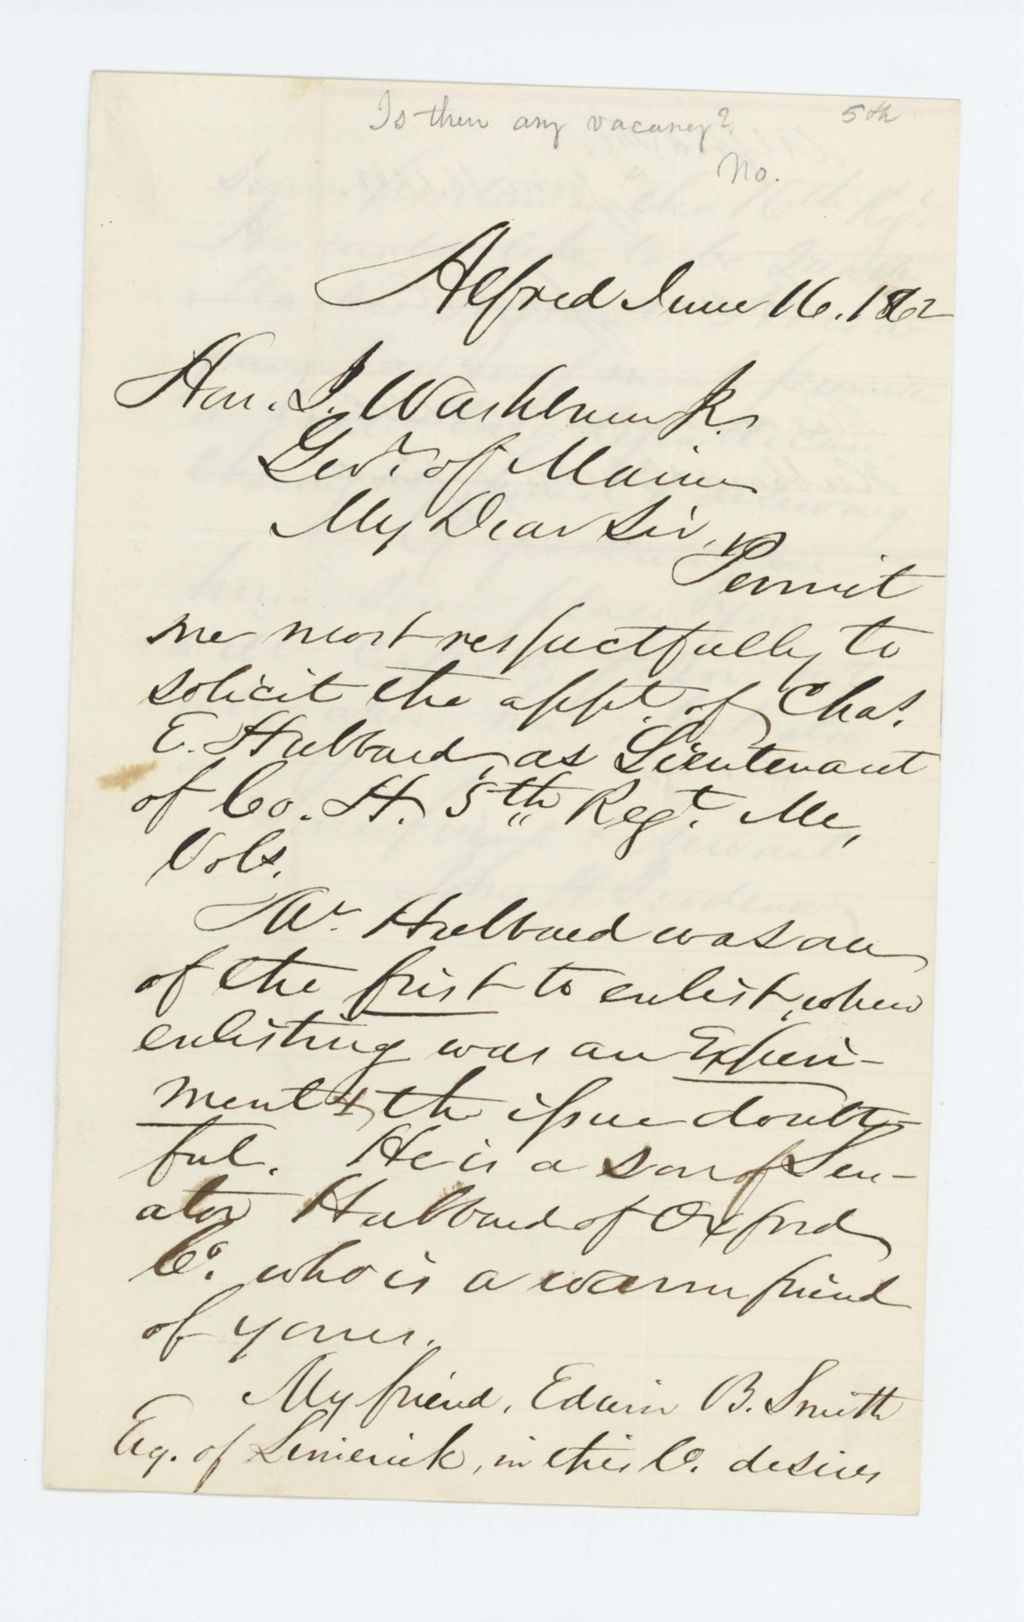 Is there any vacancy? 5th
No.
Alfred June 16. 1862
Hon. I. Washburn Jr.
Gov. of Maine
My Dear Sir,
Permit
me most respectfully to
solicit the appt. of Chas.
E. Hubbard, as Lieutenant
of Co. H. 5th Regt. Me,
Vols.
Mr. Hubbard was one
of the first to enlist, when
enlisting was an Experi-
ment & the issue doubt-
ful. He is a son of Sen-
ator Hubbard of Oxford
Co. who is a warm friend
of yours.
My friend, Edwin B. Smith
Esq. of Limerick, in this Co. desires